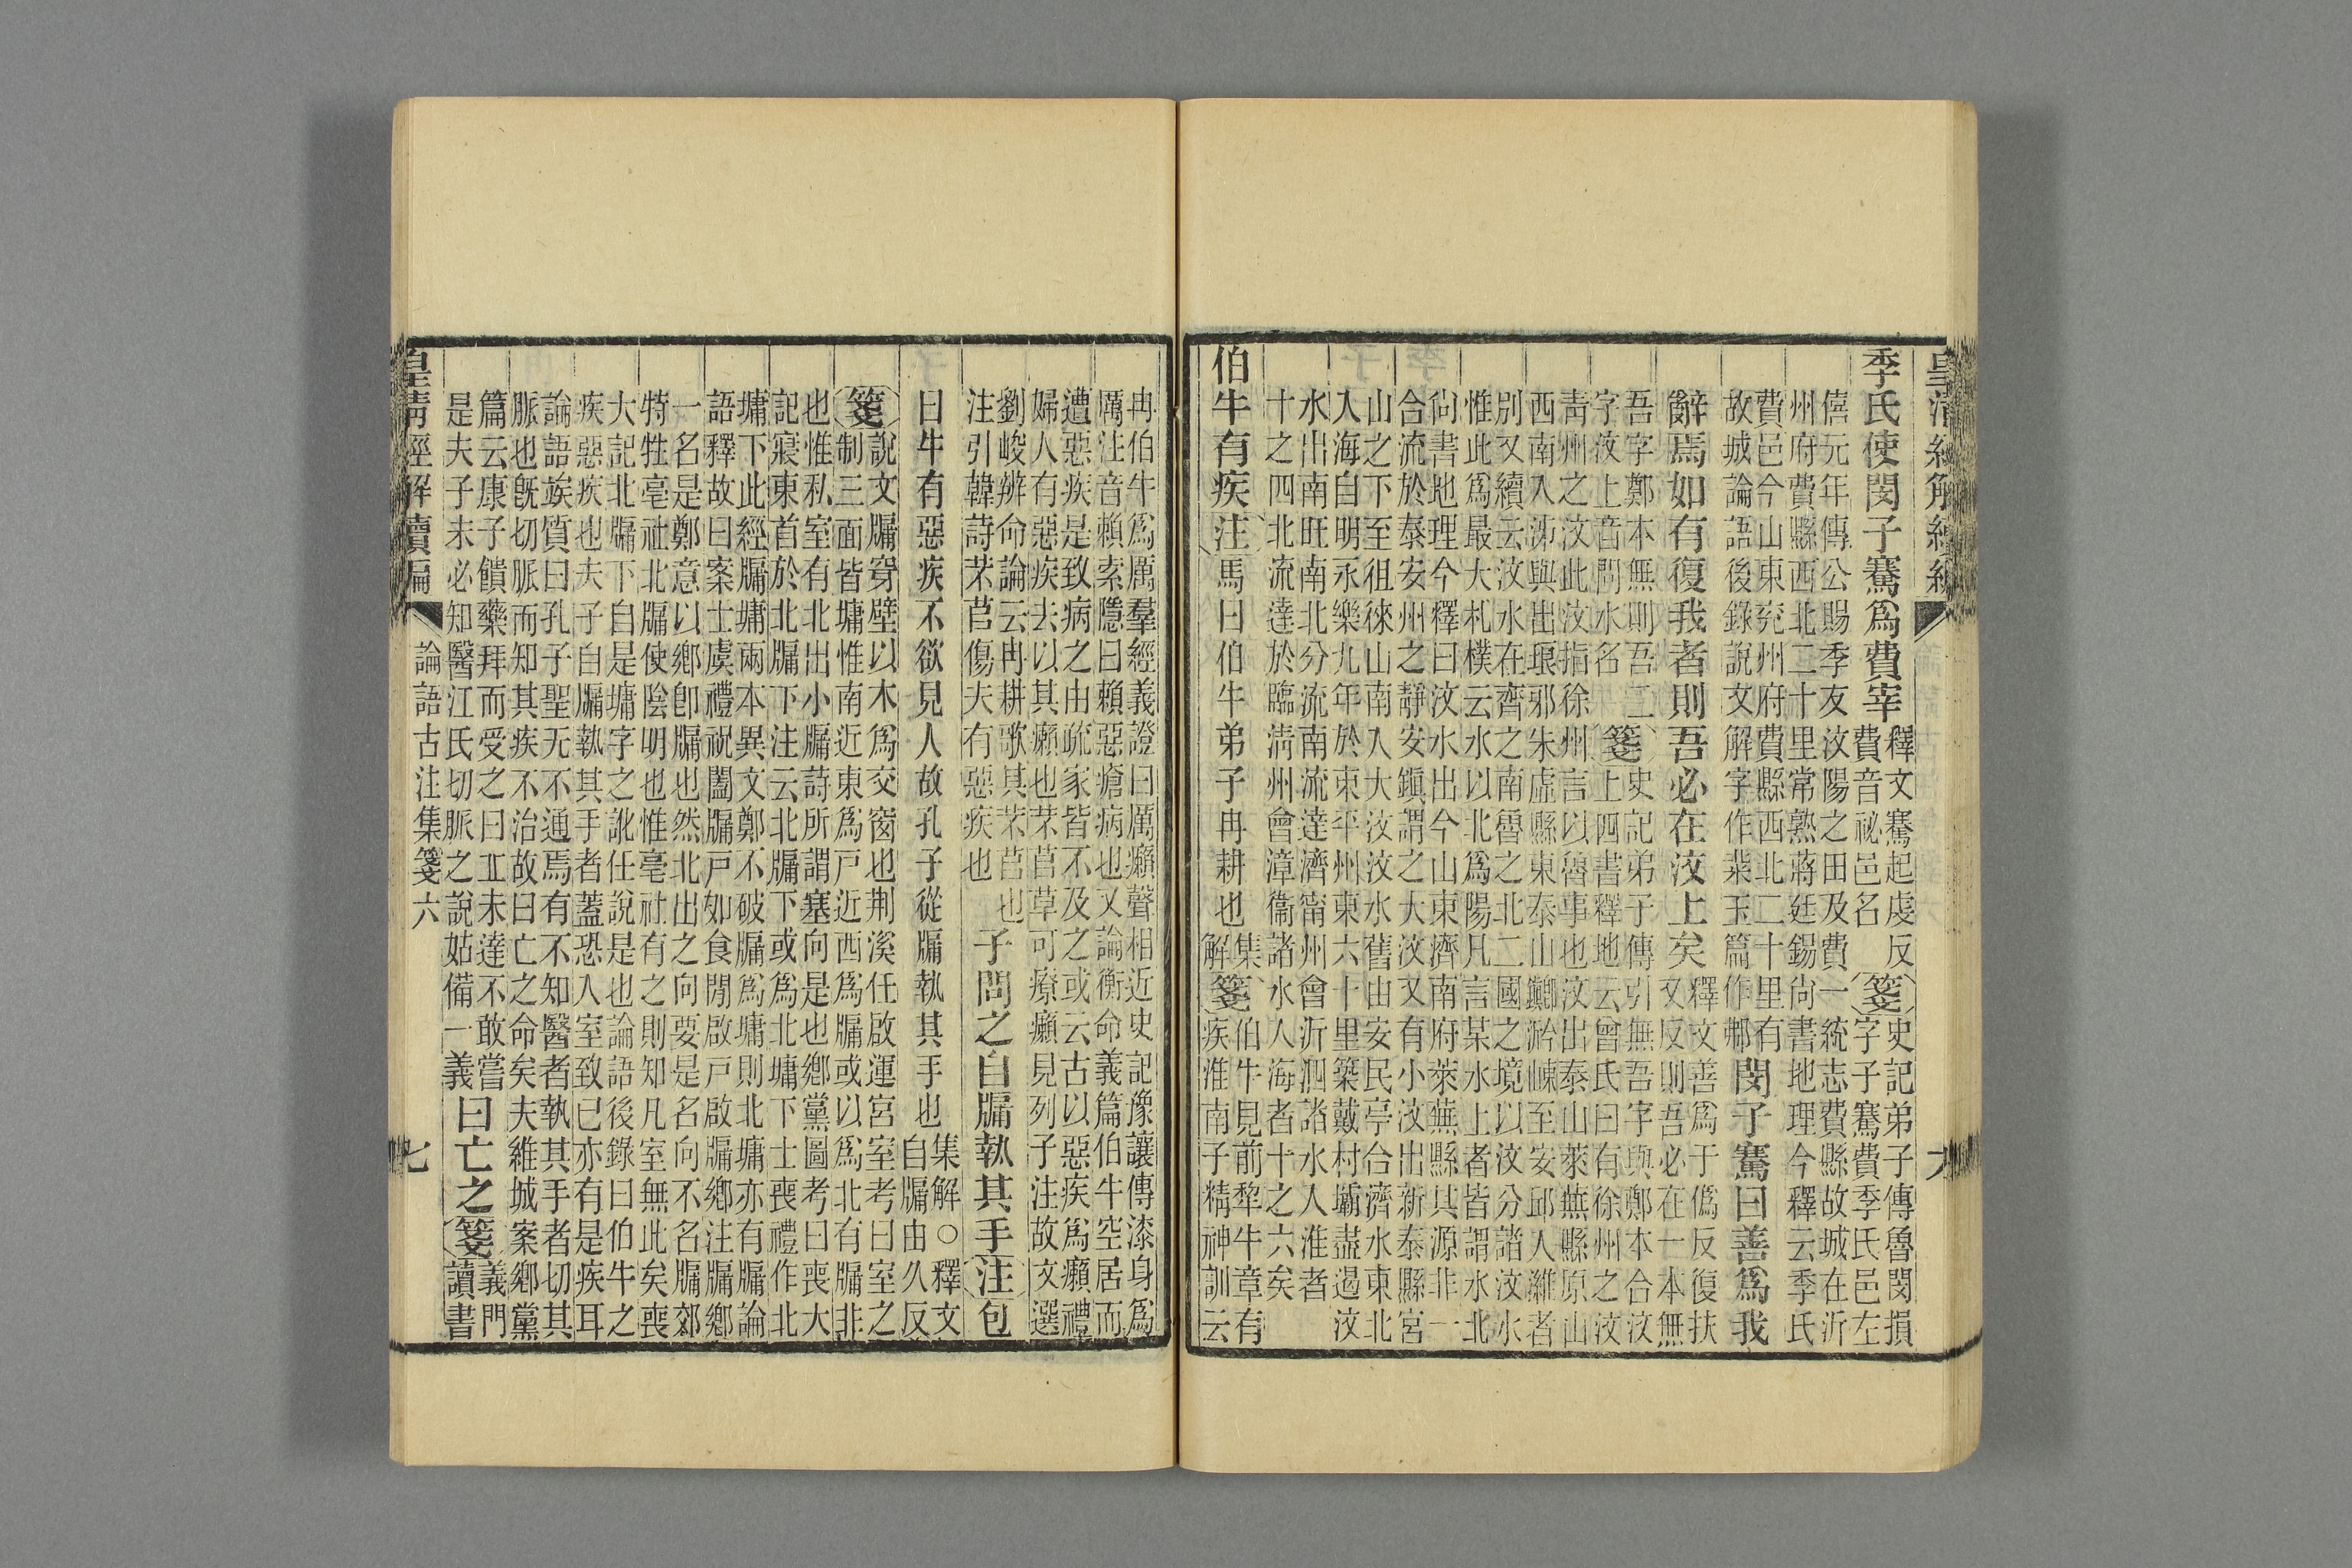 皇清經解續編
季氏使閔子騫爲費宰
釋文騫起虔反
費音祕邑名
箋
史記弟子傳魯閔損
字子騫費季氏邑左
僖元年傳公賜季友汶陽之田及費一統志費縣故城在沂
州府費縣西北二十里常熟蔣廷錫尙書地理今釋云季氏
費邑今山東兖州府費縣西北二十里有
故城論語後錄說文解字作粊玉篇作鄪
閔子騫曰善爲我
辭焉如有復我者則吾必在汶上矣
釋文善爲于僞反復扶
又反則吾必在一本無
吾字鄭本無則吾二
字汶上音問水名
箋
史記弟子傳引無吾字與鄭本合汶
上四書釋地云曾氏曰有徐州之汶
靑州之汶此汶指徐州言以魯事也汶出泰山萊蕪縣原山
西南入泲與出琅邪朱虛縣東泰山
至安邱入維者
別又續云汶水在齊之南魯之北二國之境以汶分諸汶水
惟此爲最大札樸云水以北爲陽凡言某水上者皆謂水北
尙書地理今釋曰汶水出今山東濟南府萊蕪縣其源非一
合流於泰安州之靜安鎭謂之大汶又有小汶出新泰縣宮
山之下至徂徠山南入大汶汶水舊由安民亭合濟水東北
入海自明永樂九年於東平州東六十里築戴村壩盡遏汶
水出南旺南北分流南流達濟甯州會沂泗諸水入淮者
十之四北流達於臨淸州會漳衞諸水入海者十之六矣
伯牛有疾
注
馬曰伯牛弟子冉耕也
集
解
箋
伯牛見前犂牛章有
疾淮南子精神訓云
冉伯牛爲厲羣經義證曰厲癩聲相近史記豫讓傳漆身爲
厲注音賴索隱曰賴惡瘡病也又論衡命義篇伯牛空居而
遭惡疾是致病之由疏家皆不及之或云古以惡疾爲癩禮
婦人有惡疾去以其癩也芣苢草可療癩見列子注故文選
劉峻辨命論云冉耕歌其芣苢也
注引韓詩芣苢傷夫有惡疾也
子問之自牖執其手
注
包
曰牛有惡疾不欲見人故孔子從牖執其手也
集解○釋文
自牖由久反
箋
說文牖穿壁以木爲交窗也荆溪任啟運宮室考曰室之
制三面皆墉惟南近東爲戸近西爲牖或以爲北有牖非
也惟私室有北出小牖詩所謂塞向是也鄉黨圖考曰喪大
記寢東首於北牖下注云北牖下或爲北墉下士喪禮作北
墉下此經牖墉兩本異文鄭不破牖爲墉則北墉亦有牖論
語釋故曰案士虞禮祝闔牖戸如食閒啟戸啟牖鄉注牖鄉
一名是鄭意以鄉卽牖也然北出之向要是名向不名牖郊
特牲亳社北牖使陰明也惟亳社有之則知凡室無此矣喪
大記北牖下自是墉字之訛任說是也論語後錄曰伯牛之
疾惡疾也夫子自牖執其手者蓋恐人室致已亦有是疾耳
論語竢質曰孔子聖无不通焉有不知醫者執其手者切其
脈也旣切脈而知其疾不治故曰亡之命矣夫維城案鄉黨
篇云康子饋藥拜而受之曰丘未達不敢嘗
是夫子未必知醫江氏切脈之說姑備一義
曰亡之
箋
義門
讀書
皇淸經解續編
論語古注集箋六
七